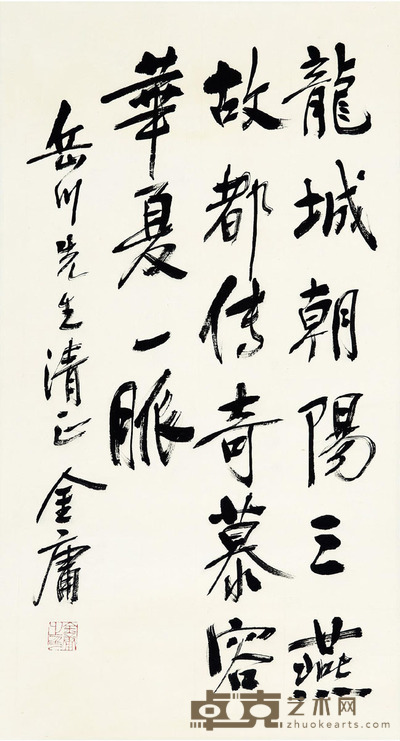 龍城朝陽三燕
故都傳奇慕容
華夏一脈
岳川先生清正 金庸
卓克艺术网
zhuokearts.com